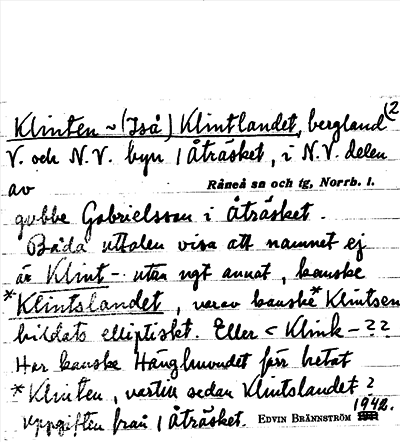 (2
Klinten ~ (Iså) Klintlandet, bergland
V. och N.V. byn 1 Åträsket, i N.V. delen
av Råneå sn och tg, Norrb. l.
gubbe Gabrielsson i Åträsket.
Båda uttalen visa att namnet ej
är Klint- utan ngt annat, kanske
*Klintslandet, varav kanske *Klintsen
bildats elliptiskt. Eller < Klink- ??
Har kanske Hängl förr hetat
*Klinten, vartill sedan Klintslandet?
Uppgiften från 1 Åträsket. EDVIN BRÄNNSTRÖM 1942.